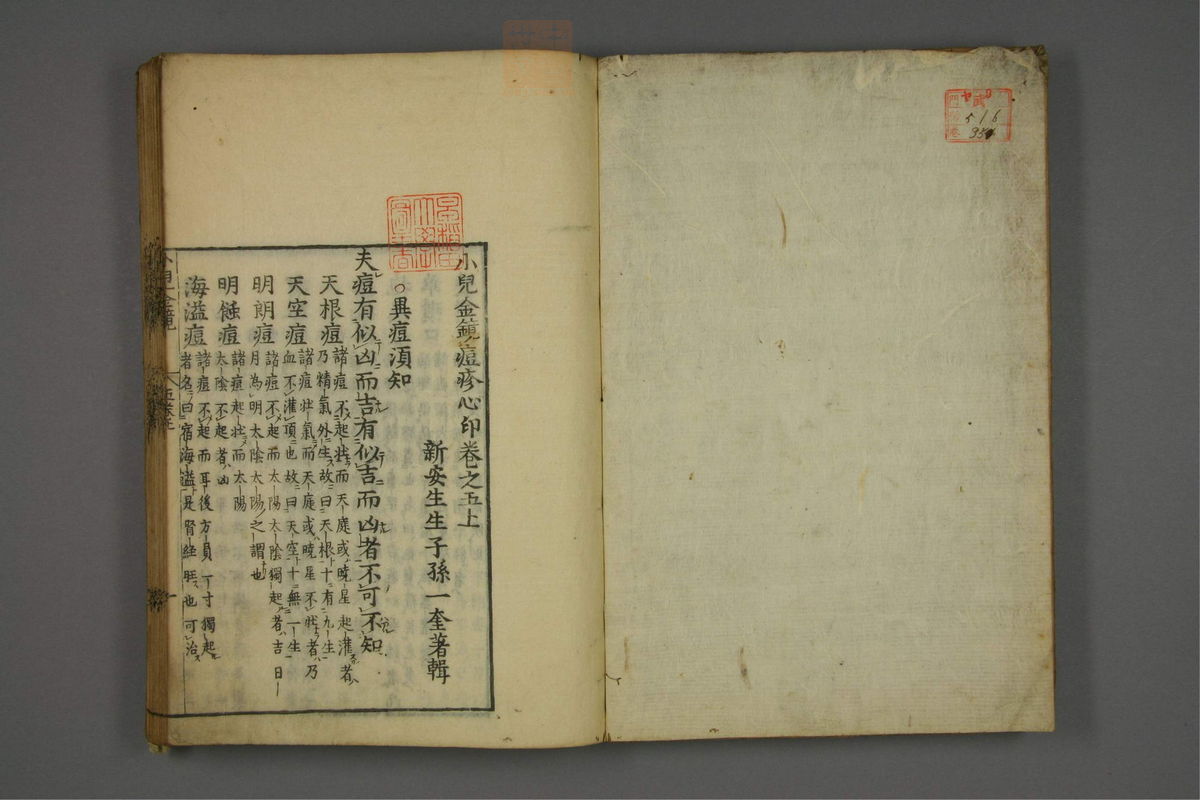 小兒金鏡痘疹心印卷之五上
新安生生子孫一奎著輯
○異痘須知
夫痘有似凶而吉有似吉而凶者不可不知
天根痘 諸痘不起壯而天庭或曉星起灌者
乃精氣外生故曰天根十有九生
天空痘 諸痘壯氣而天庭或曉星不壯者乃
血不灌頂也故曰天空十無一生
明朗痘 諸痘不起而太陽太陰獨起者吉日
月為明太陰太陽之謂也
明䘌痘 諸痘起壯而太陽
太陰不起者凶
海溢痘 諸痘不起而耳後方員一寸獨起
者名曰宿海溢是腎經旺也可治
早稻田大學圖書
516